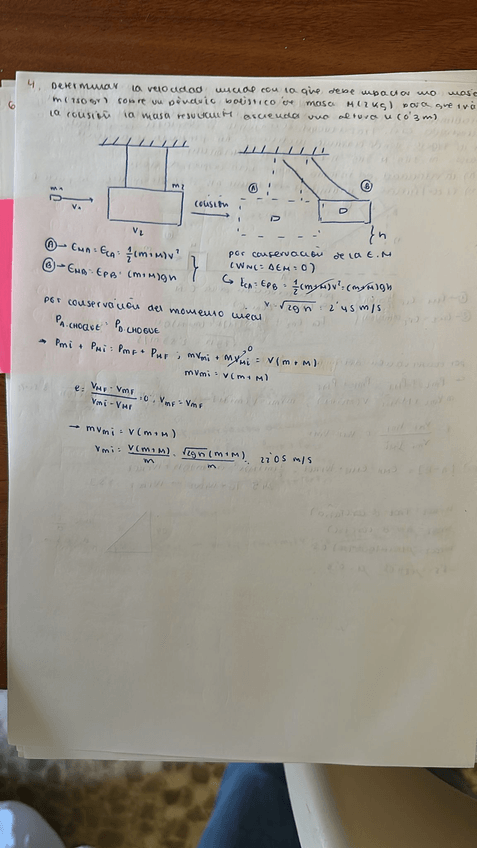 4. Determinar la velocidad inicial con la que debe impactar una masa
m (250 gr) sobre un péndulo balístico de masa M (2 kg) para que tras
6
la colisión la masa resultante ascienda una altura h (0'3 m)
m1
v1
m2
v2
colisión
A
B
h
A → EMA = ECA = 1/2 (m+M) v²
B → EMB = EPB = (m+M) gh
por conservación de la E.M
(WNC = ΔEM = 0)
↳ ECA = EPB = 1/2 (m+M) v² = (m+M) gh
v = √2gh = 2'45 m/s
por conservación del momento lineal
PA.CHOQUE = PD.CHOQUE
→ Pmi + PMi = PmF + PMF ; mvmi + MvMi = v (m+M)
0
mvmi = v (m+M)
e = VMF - VmF / Vmi - VMF = 0 , VMF = VmF
→ mvmi = v (m+M)
vmi = v (m+M) / m = √2gh (m+M) / m = 22'05 m/s